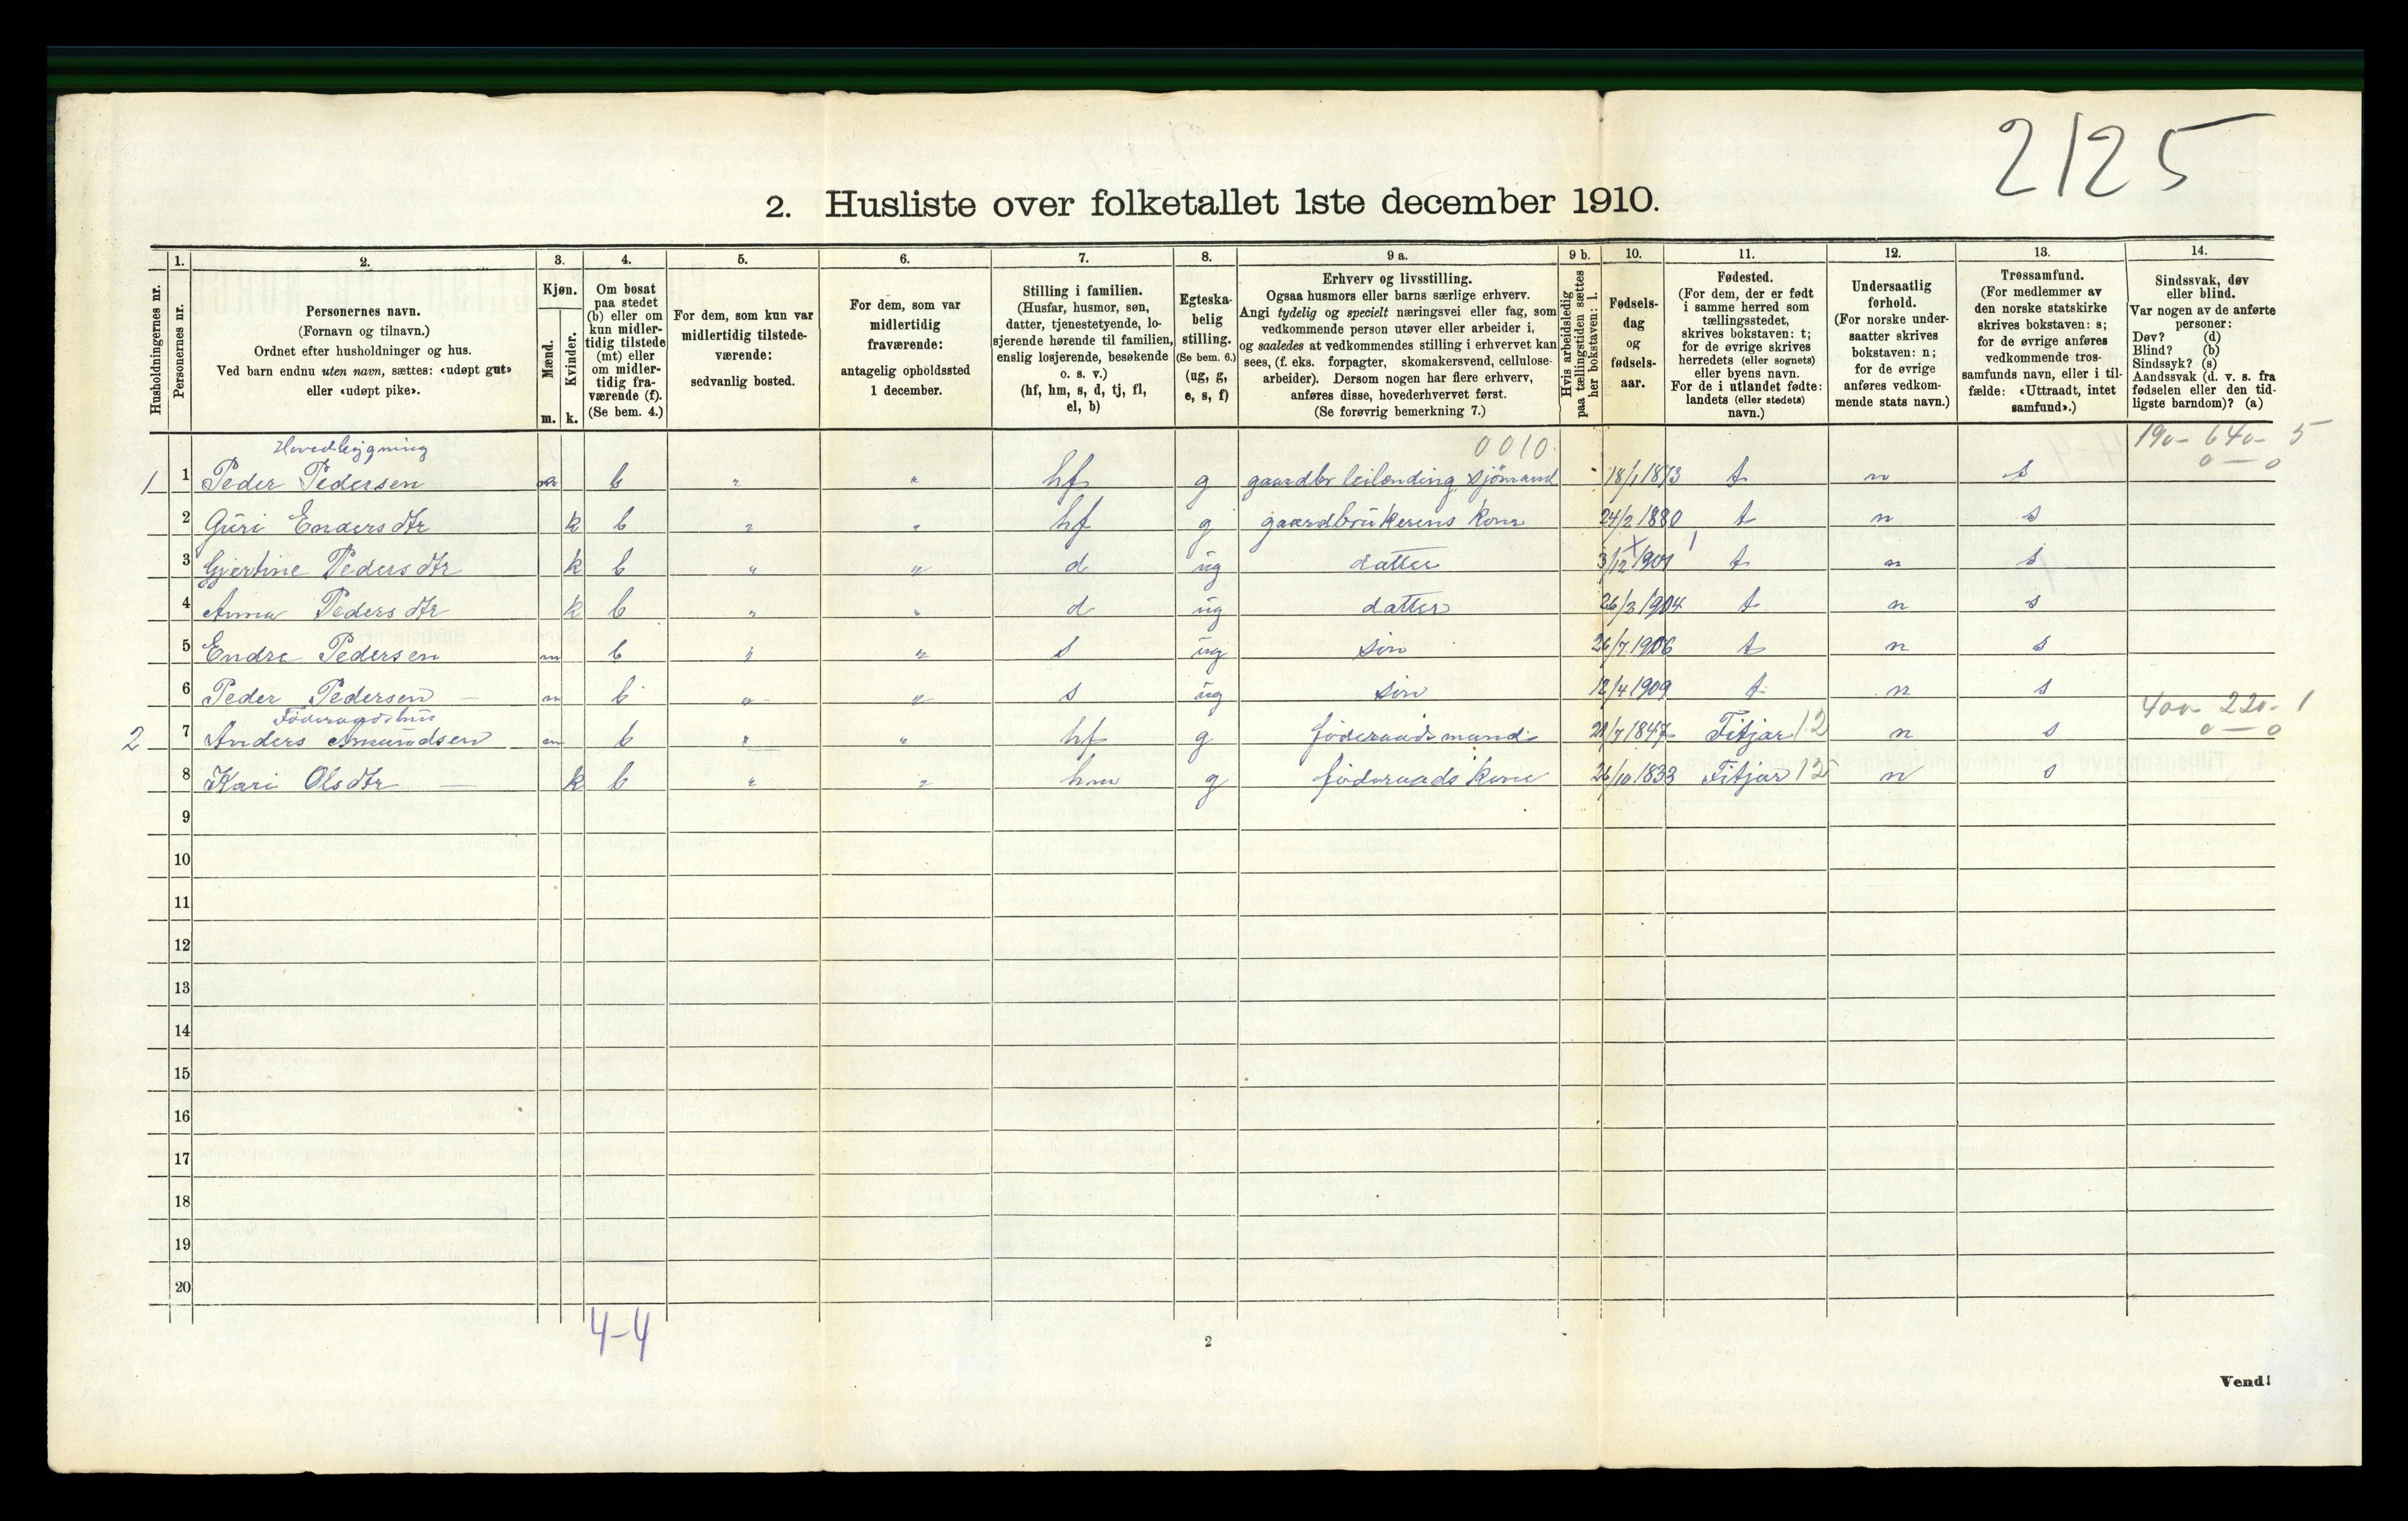 2125
2. Husliste over folketallet 1ste december 1910.
Husholdningernes nr.
1.
Personernes nr.
2.
Personernes navn.
(Fornavn og tilnavn.)
Ordnet efter husholdninger og hus.
Ved barn endnu uten navn, sættes: «udøpt gut»
eller «udøpt pike».
3.
Kjøn.
Mænd.
m.
Kvinder.
k.
4.
Om bosat
paa stedet
(b) eller om
kun midler-
tidig tilstede
(mt) eller
om midler-
tidig fra-
værende (f).
(Se bem. 4.)
5.
For dem, som kun var
midlertidig tilstede-
værende:
sedvanlig bosted.
6.
For dem, som var
midlertidig
fraværende:
antagelig opholdssted
1 december.
7.
Stilling i familien.
(Husfar, husmor, søn,
datter, tjenestetyende, lo-
sjerende hørende til familien,
enslig losjerende, besøkende
o. s. v.)
(hf, hm, s, d, tj, fl,
el, b)
8.
Egteska-
belig
stilling.
(Se bem. 6.)
(ug, g,
e, s, f)
9 a.
Erhverv og livsstilling.
Ogsaa husmors eller barns særlige erhverv.
Angi tydelig og specielt næringsvei eller fag, som
vedkommende person utøver eller arbeider i,
og saaledes at vedkommendes stilling i erhvervet kan
sees, (f. eks. forpagter, skomakersvend, cellulose-
arbeider). Dersom nogen har flere erhverv,
anføres disse, hovederhvervet først.
(Se forøvrig bemerkning 7.)
9 b.
Hvis arbeidsledig
paa tællingstiden sættes
her bokstaven: l.
10.
Fødsels-
dag
og
fødsels-
aar.
11.
Fødested.
(For dem, der er født
i samme herred som
tællingsstedet,
skrives bokstaven: t;
for de øvrige skrives
herredets (eller sognets)
eller byens navn.
For de i utlandet fødte:
landets (eller stedets)
navn.)
12.
Undersaatlig
forhold.
(For norske under-
saatter skrives
bokstaven: n;
for de øvrige
anføres vedkom-
mende stats navn.)
13.
Trossamfund.
(For medlemmer av
den norske statskirke
skrives bokstaven: s;
for de øvrige anføres
vedkommende tros-
samfunds navn, eller i til-
fælde: «Uttraadt, intet
samfund».)
14.
Sindssvak, døv
eller blind.
Var nogen av de anførte
personer:
Døv? (d)
Blind? (b)
Sindssyk? (s)
Aandssvak (d. v. s. fra
fødselen eller den tid-
ligste barndom)? (a)
Hovedbygning 0010 190 - 640 - 5
0 — 0
1 1 Peder Pedersen m b " " hf g gaardbr leilending sjömand 18/1 1873 t n s
2 Guri Endersdtr k b " " hf g gaardbrukerens kone 24/2 1880 t n s
3 Gjertine Pedersdtr k b " " d ug datter 3/12 1901 t n s
4 Anna Pedersdtr k b " " d ug datter 26/3 1904 t n s
5 Endre Pedersen m b " " s ug sön 26/7 1906 t n s
6 Peder Pedersen — m b " " s ug sön 12/4 1909 t n s
Föderaadshus 400 - 220 - 1
0 — 0
2 7 Anders Amundsen m b " " hf g föderaadsmand 21/7 1847 Fitjar 12 n s
8 Kari Olsdtr — k b " " hm g föderaads kone 26/10 1833 Fitjar 12 n s
9
10
11
12
13
14
15
16
17
18
19
20
4-4
2
Vend!